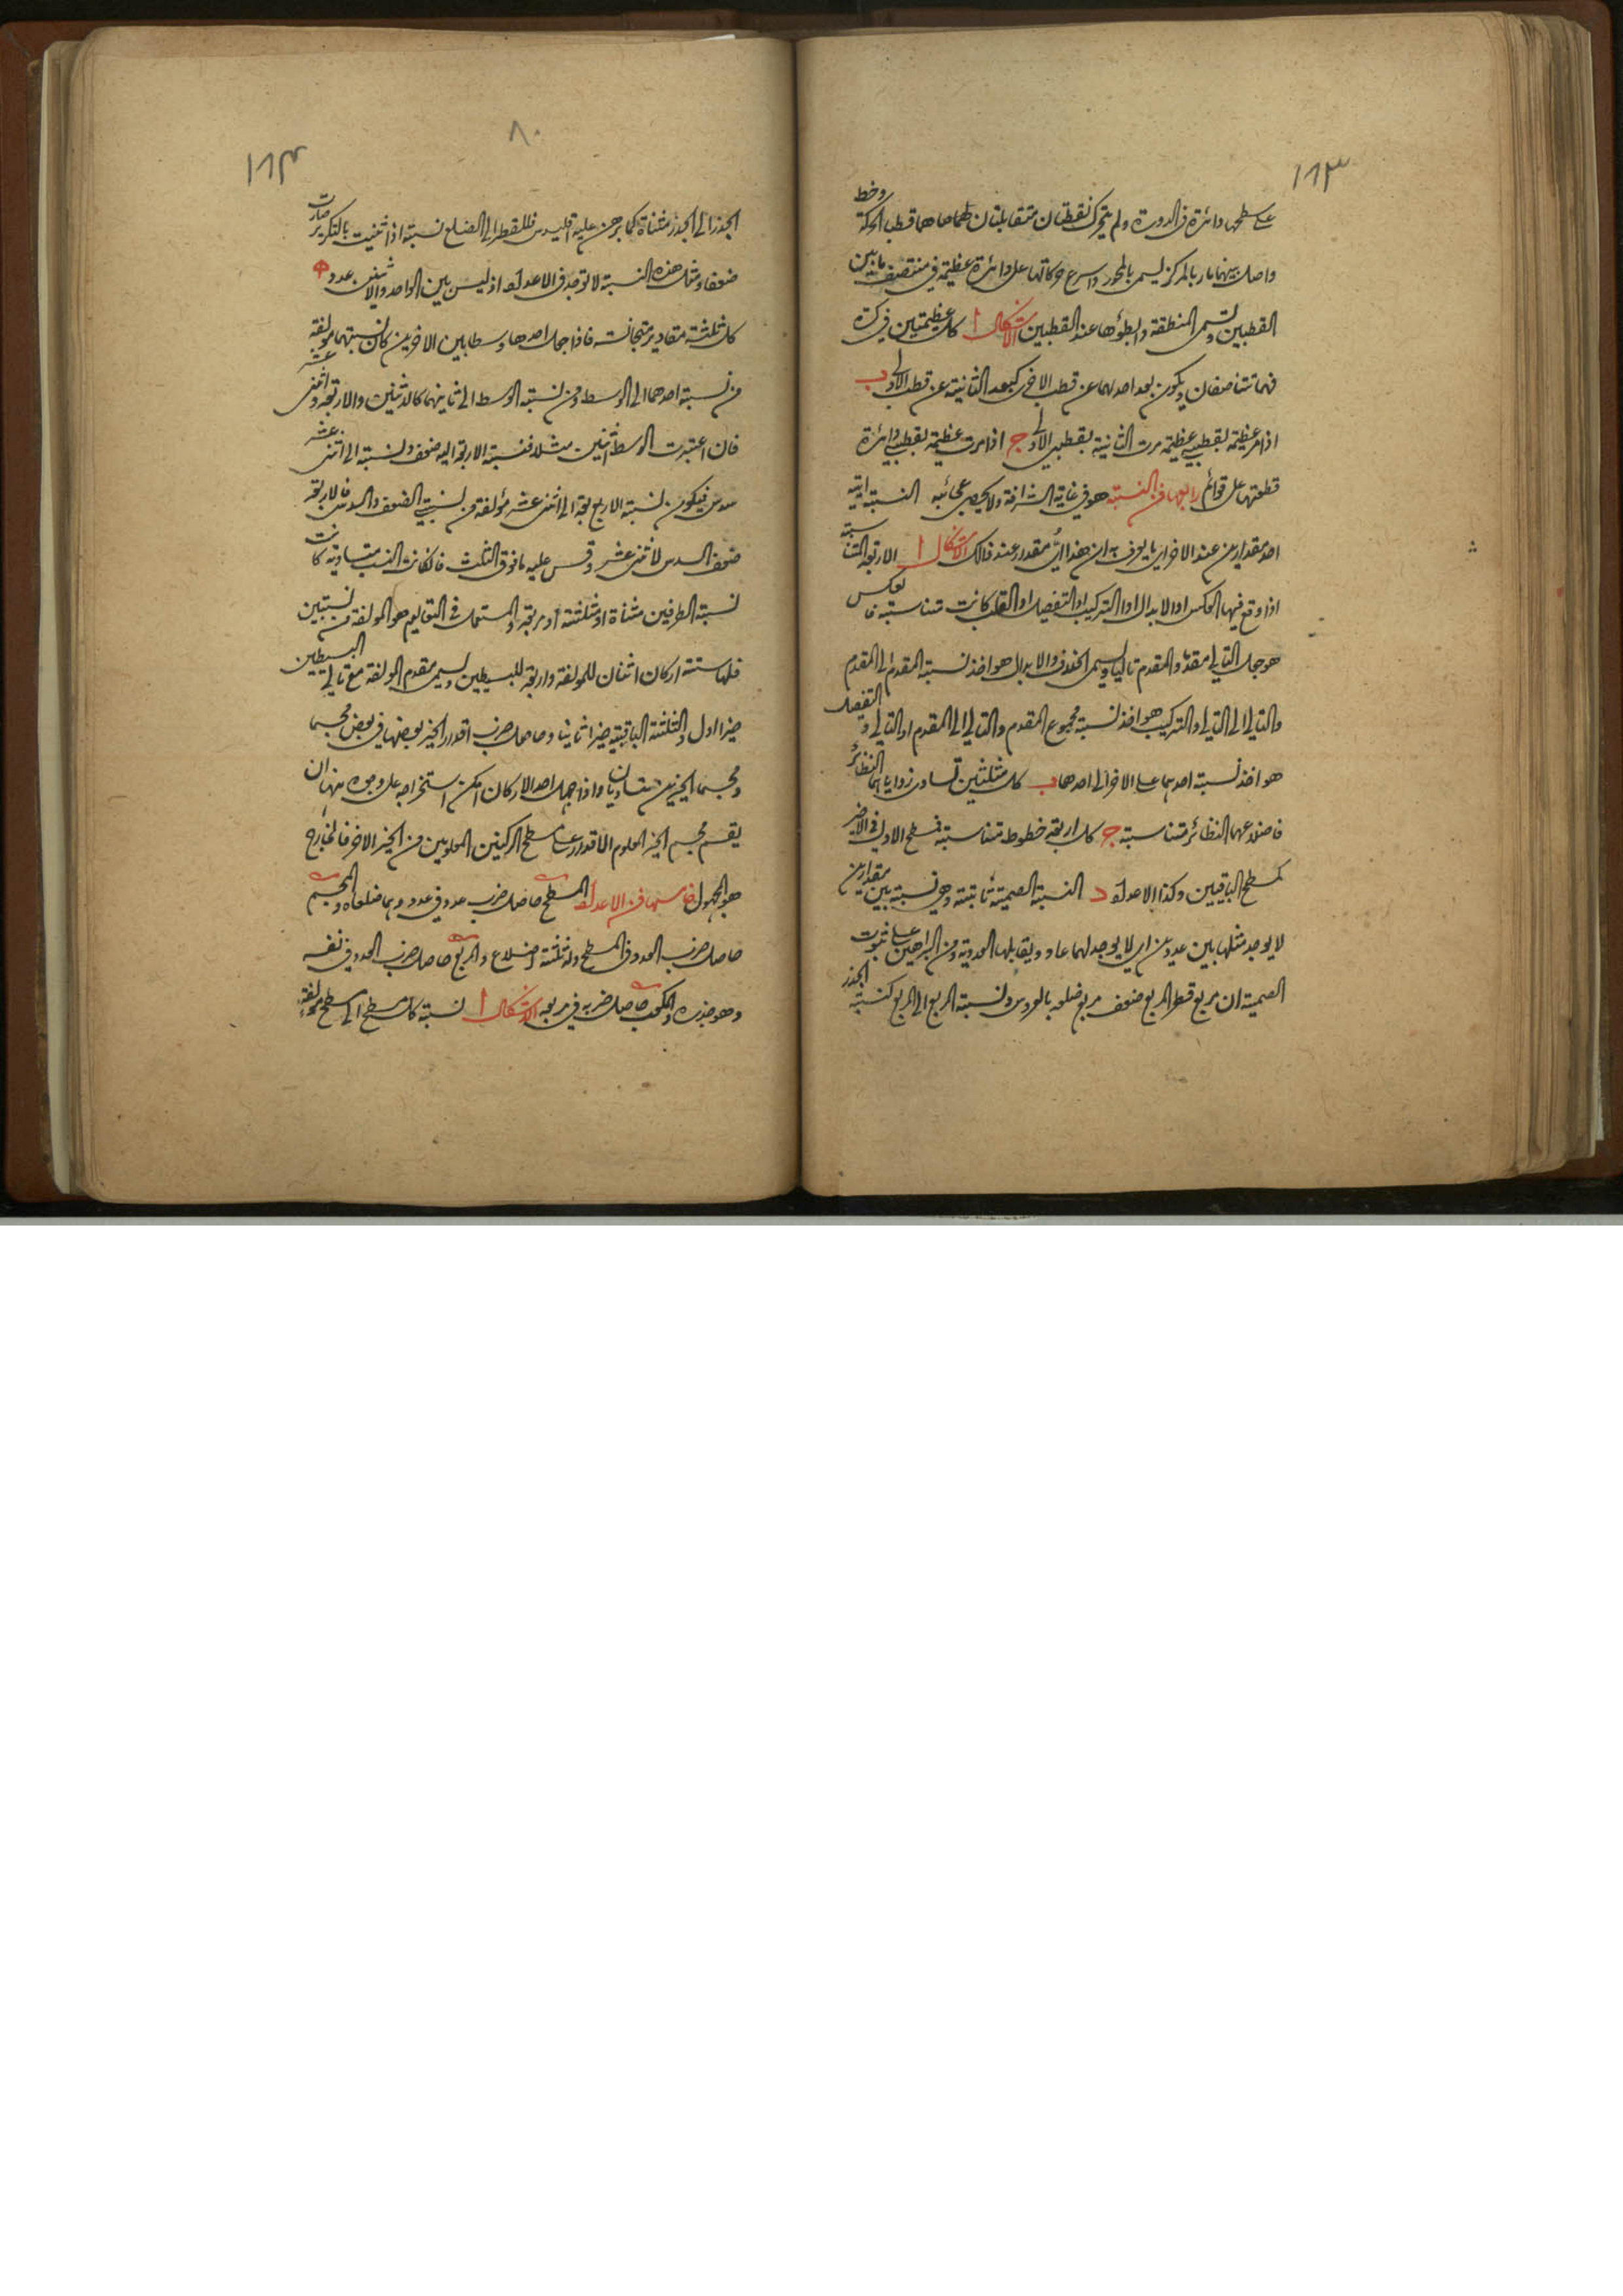 ١١٣
على سطحها دائرة فى الدورة ولم يتحرك نقطتان متقابلتان هما قطبا الحركة وخط
واصل بينهما مار بالمركز يسمى بالمحور واسرع حركاتها على دائرة عظيمة فى منتصف ما بين
القطبين وتسمى المنطقة وابطؤها عند القطبين الاشكال ا كل عظيمتين فى كرة
فهما تتناصفان ويكون بعد احدهما عن قطب الاخرى كبعد الثانية عن قطب الاولى ب
اذا مر عظيمة بقطبى عظيمة مرت الثانية بقطبى الاولى ج اذا مرت عظيمة بقطبى دائرة
قطعتها على قوائم رابعها فن النسبة هو فى غاية الشرافة ولا يحصى عجائبه النسبة ايية
احد مقدارين عند الاخر اى ما يعرف به ان هذا اى مقدر عند ذالك الاشكال ا الاربعة المتناسبة
اذا وقع فيها العكس او الابدال او التركيب او التفصيل او القلب كانت متناسبة فالعكس
هو جعل التالى مقدما والمقدم تاليا ويسمى الخلاف والابدال هو اخذ نسبة المقدم الى المقدم
والتالى الى التالى والتركيب هو اخذ نسبة مجموع المقدم والتالى الى المقدم او التالى والتفصيل
هو اخذ نسبة احدهما على الاخر الى احدهما ب كل مثلثين تساوى زواياهما النظائر
فاضلاعهما النظائر متناسبة ج كل اربعة خطوط متناسبة فسطح الاول فى الاخر
كمسطح الباقيين وكذا الاعداد د النسبة الصمية ثابتة وهى نسبة بين مقدارين
لا يوجد مثلها بين عددين اى لا يوجد لهما عاد ويقابلها العددية ومن البراهين على ثبوت
الصمية ان مربع قطر المربع ضعف مربع ضلعه بالعروس ونسبة المربع الى المربع كنسبة الجذر
٨٠
١١٤
الجذر الى الجذر مثناة كما برهن عليه اقليدس فللقطر الى الضلع نسبة اذا ثنيت بالتكرير صارت
ضعفا ومثل هذه النسبة لا توجد فى الاعداد اذ ليس بين الواحد والاثنين عدد ه
كل ثلثة مقادير متجانسة فاذا جعل احدها وسطا بين الاخرين كان نسبتهما مؤلفة
من نسبة احدهما الى الوسط ومن نسبة الوسط الى ثانيهما كالاثنين والاربعة واثنى عشر
فان اعتبرت الوسط اثنين مثلا فنسبة الاربعة اليه ضعف ونسبته الى اثنى عشر
سدس فيكون نسبة الاربعة الى اثنى عشر مؤلفة من نسبتى الضعف والسدس فالاربعة
ضعف السدس لاثنى عشر وقس عليه ما فوق الثلث فان كانت النسب متساوية كانت
نسبة الطرفين مثناة او مثلثة او مربعة والمستعمل فى التعاليم هو المولفة من نسبتين
فلها ستة اركان اثنان للمولفة واربعة للبسيطين ويسمى مقدم المولفة مع تاليى البسيطين
حيزا اول والثلثة الباقية حيزا ثانيا وحاصل ضرب اقدار الحيز بعضها فى بعض مجسما
ومجسما الحيزين متساويان واذا جهل احد الاركان امكن استخراجه على وجوه منها ان
يقسم مجسم الحيز المعلوم الاقدار على مسطح الركنين المعلومين من الحيز الاخر فالخارج
هو المجهول خامسها فن الاعداد المسطح حاصل ضرب عدد فى عدد وهما ضلعاه والمجسم
حاصل ضرب العدد فى المسطح وله ثلثة اضلاع والمربع حاصل ضرب العدد فى نفسه
وهو جذره والمكعب حاصل ضربه فى مربعه الاشكال ا نسبة كل مسطح الى مسطح مولفة